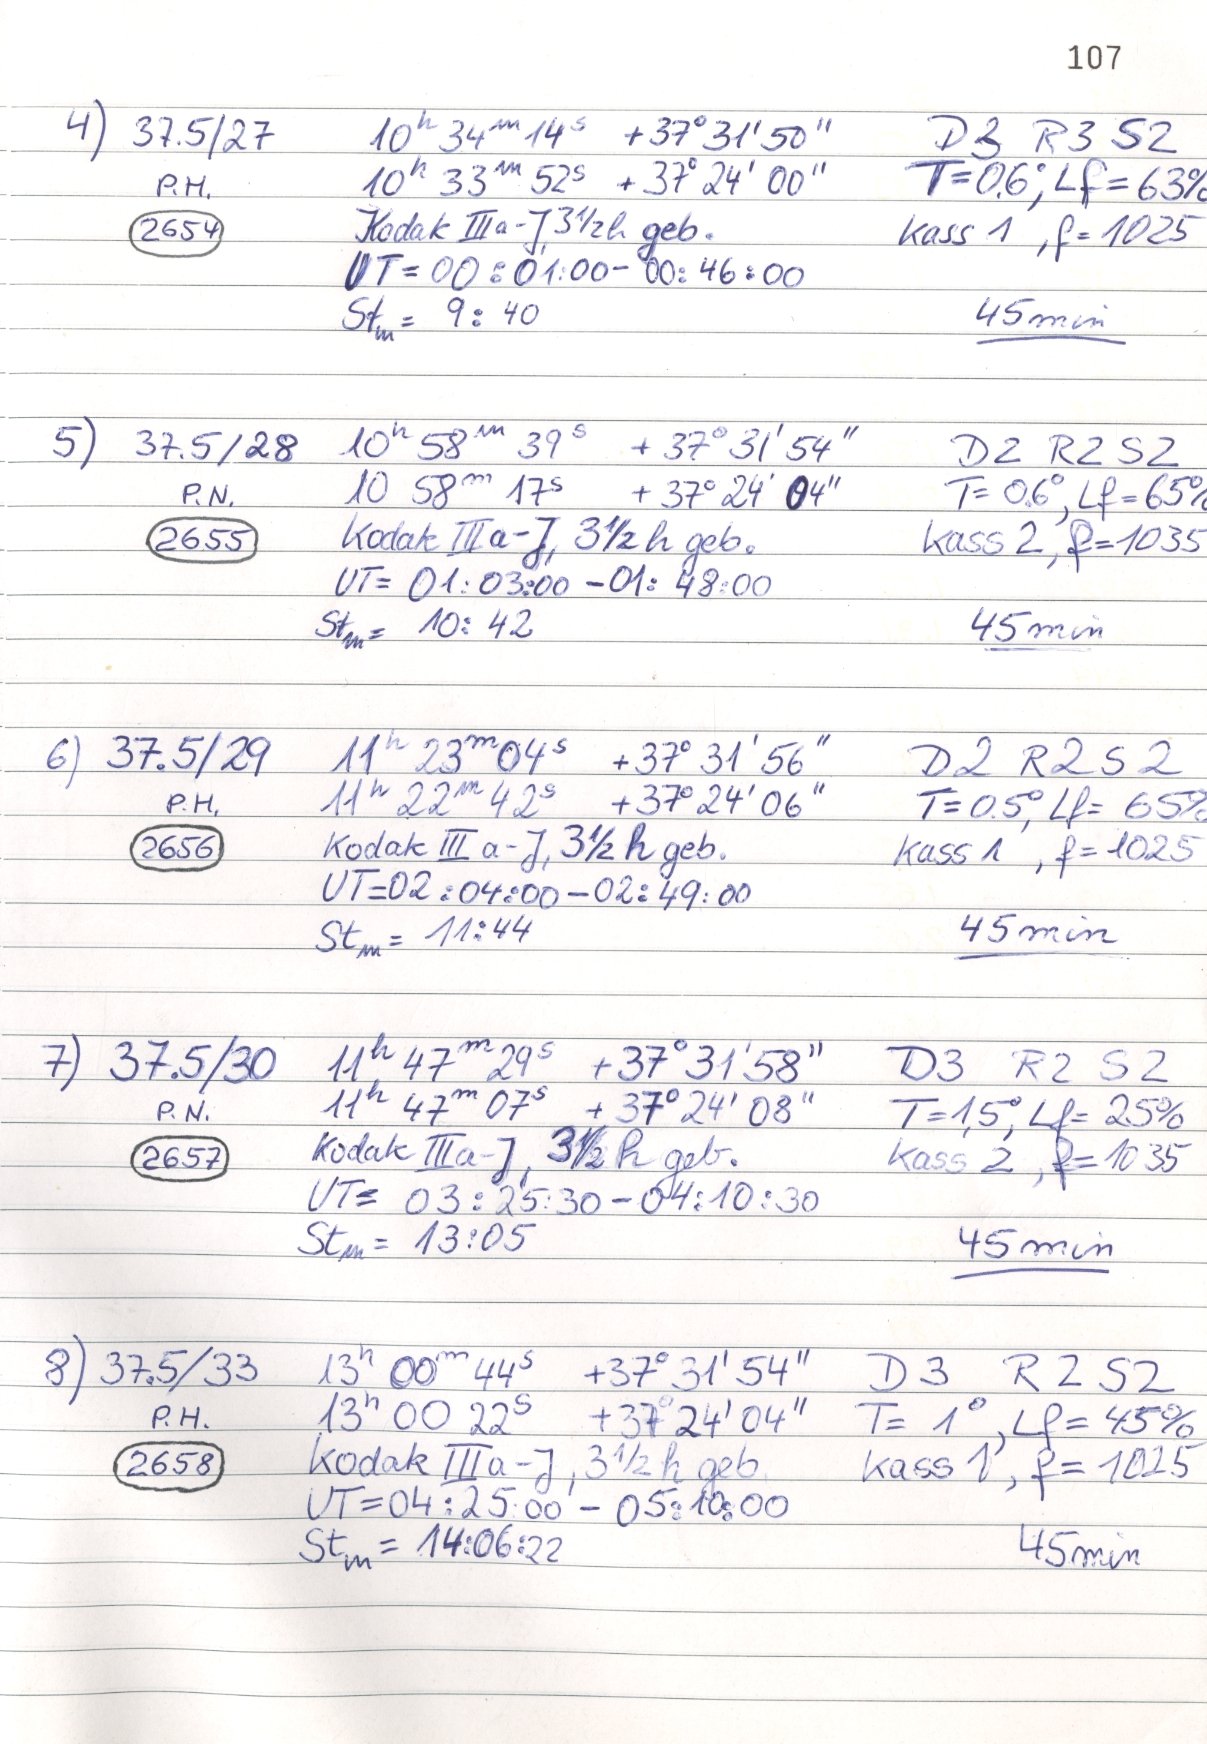 107
4) 37.5/27 10h 34m 14s +37° 31' 50" D3 R3 S2
P.H. 10h 33m 52s +37° 24' 00" T=0.6°, Lf=63%
2654 Kodak IIIa-J, 3½h geb. Kass 1, f=1025
UT=00:01:00-00:46:00
Stm= 9:40 45min
5) 37.5/28 10h 58m 39s +37° 31' 54" D2 R2 S2
P.N. 10 58m 17s +37° 24' 04" T=0.6°, Lf=65%
2655 Kodak IIIa-J, 3½h geb. Kass 2, f=1035
UT= 01:03:00-01:48:00
Stm= 10:42 45min
6) 37.5/29 11h 23m 04s +37° 31' 56" D2 R2 S2
P.H. 11h 22m 42s +37° 24' 06" T=0.5°, Lf= 65%
2656 Kodak IIIa-J, 3½h geb. Kass 1, f=1025
UT=02:04:00-02:49:00
Stm= 11:44 45min
7) 37.5/30 11h 47m 29s +37° 31' 58" D3 R2 S2
P.N. 11h 47m 07s +37° 24' 08" T=1,5°, Lf= 25%
2657 Kodak IIIa-J, 3½h geb. Kass 2, f=1035
UT= 03:25:30-04:10:30
Stm= 13:05 45min
8) 37.5/33 13h 00m 44s +37° 31' 54" D3 R2 S2
P.H. 13h 00 22s +37° 24' 04" T= 1°, Lf=45%
2658 Kodak IIIa-J, 3½h geb. Kass 1, f=1025
UT=04:25:00-05:10:00
Stm= 14:06:22 45min